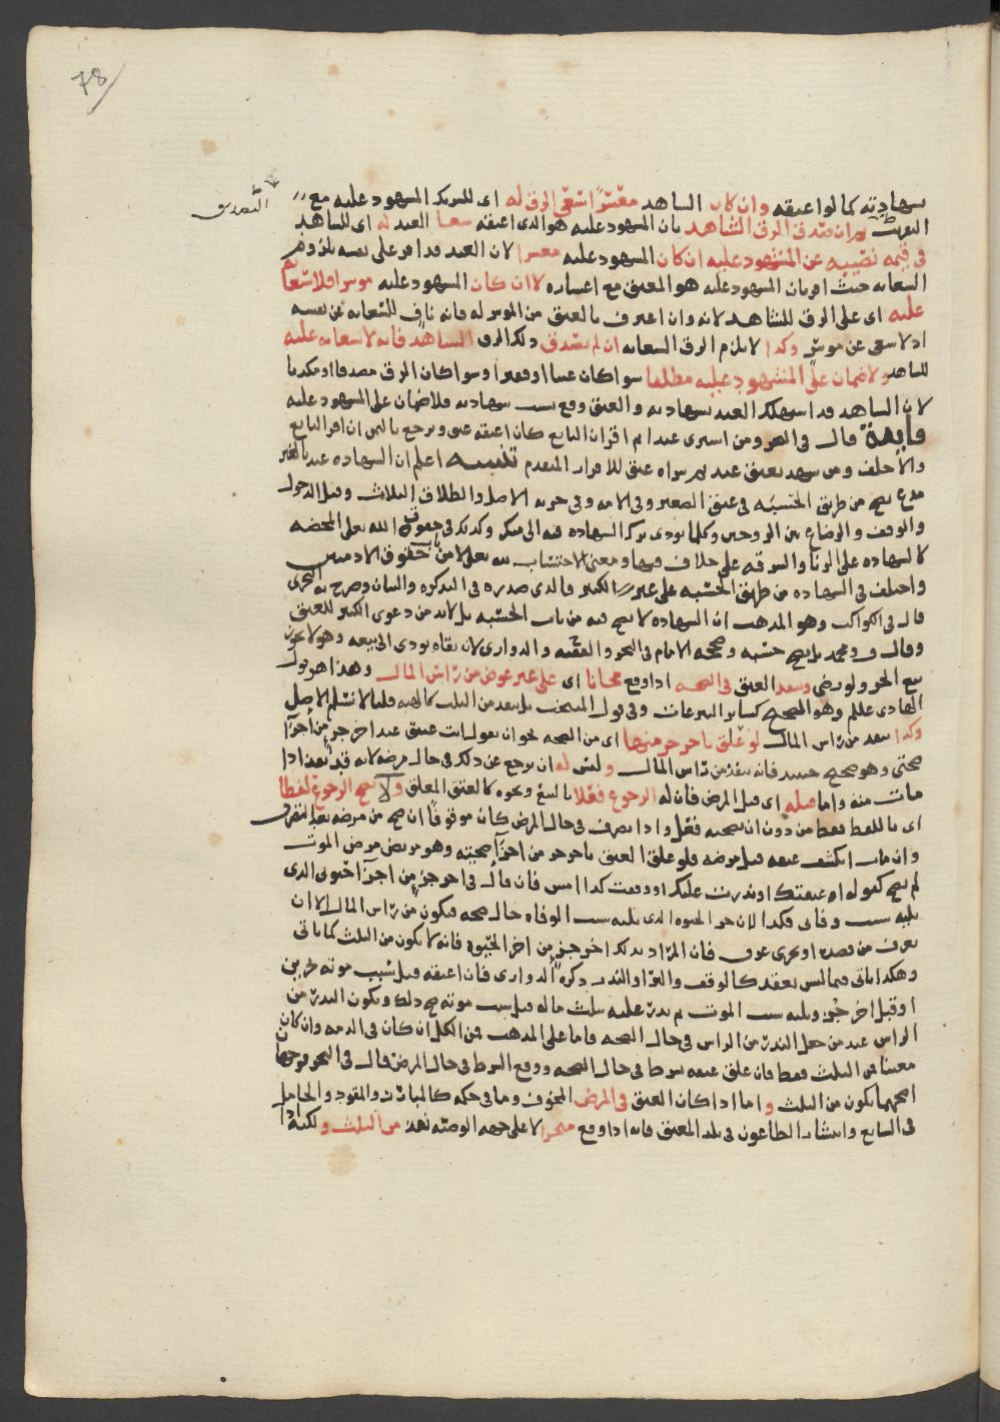 78
بشهادته كما لو اعتقه وان كان الشاهد معسرًا استسعى الرق له اى للشريك المشهود عليه مع
التصديق
ان صدق الرق الشاهد بان المشهود عليه هو الذى اعتقه سعا العبد له اى للشاهد
فى قيمه نصيبه عن المشهود عليه ان كان المشهود عليه معسرا لان العبد قد اقر على نفسه بلزوم
السعايه حيث اقر بان المشهود عليه هو المعتق مع اعساره لا ان كان المشهود عليه موسرا فلا سعايه
عليه اى على الرق للشاهد لانه وان اعترف بالعتق من الموسر له فانه ناف للسعايه عن نفسه
اذ لا سعى عن موسر وكذا لا يلزم الرق السعايه ان لم يصدق ذلك الرق الشاهد فانه لا سعايه عليه
للشاهد ولا ضمان على المشهود عليه مطلقا سوا كان غنيا او فقيرا وسوا كان الرق مصدقا او مكذبا
لان الشاهد قد استهلك العبد بشهادته والعتق وقع بسبب شهادته فلا ضمان على المشهود عليه
فايدة قال فى البحر ومن اشترى عبدا ثم اقر ان البايع كان اعتقه عتق ويرجع بالثمن ان اقر البايع
والا حلف ومن شهد بعتق عبد ثم شراه عتق للاقرار المتقدم تنبيه اعلم ان الشهاده عند
تصح من طريق الحسبه فى عتق الصغير وفى الامه وفى حريه الاصل والطلاق الثلاث وقبل الدخول
والوقف والرضاع بين الزوجين وكلما يودى ترك الشهاده فيه الى منكر وكذلك فى حقوق الله تعلى المحضه
كالشهاده على الزنا والسرقه على خلاف فيها ومعنى الاحتساب لله تعلى لا من حقوق الادميين
واختلف فى الشهاده من طريق الحسبه على عتق الكبير فالذى صدره فى التذكره والبيان وصرح به النجرى
قال فى الكواكب وهو المذهب ان الشهاده لا تصح فيه من باب الحسبه بل لا بد من دعوى الكبير للعتق
وقال ف ومحمد بل يصح حسبه وصححه الامام فى البحر والفقيه والدوارى لان بقاه يودى الى بيعه وهو لا يجوز
بيع الحر ولو رضى وينفذ العتق فى الصحه اذا وقع مجانا اى على غير عوض من راس المال وهذا هو قول
الهادى عللم وهو الصحيح كساير التبرعات وفى قول المنتخب بل ينفذ من الثلث كالهبه قلنا لا نسلم الاصل
وكذا ينفذ من راس المال لو علق باخر جزء منها اى من الصحه نحو ان يقول انت عتيق عند اخر جزء من اجزا
صحتى وهو صحيح حينيذ فانه ينفذ من راس المال وليس له ان يرجع عن ذلك فى حال مرضه لانه قد نفذ اذا
مات منه واما قبله اى قبل المرض فان له الرجوع فعلا بالبيع ونحوه كالعتق المعلق ولا يصح الرجوع لفظا
اى باللفظ فقط من دون ان يصحبه فعل واذا تصرف فى حال المرض كان موقوفا ان صح من مرضه نفذ التصرف
وان مات انكشف عتقه قبل مرضه فلو علق العتق باخر جزء من اجزا صحته وهو مريض مرض الموت
لم يصح كقوله اعتقتك او نذرت عليك او وقفت كذا امس فان قال فى اخر جزء من اجزا حيوتى الذى
يليه سبب وفاتى فكذا لان حد الحيوه الذى يليه سبب الوفاه حال صحه فيكون من راس المال الا ان
يعرف من قصده او يجرى عرف فان المراد بذلك اخر جزء من اخر الحيوه فانه يكون من الثلث كما ياتى
وهكذا ياتى فيما ليس بعقد كالوقف والنذر ذكره الدوارى فان اعتقه قبل سبب موته
او قبل اخر جزء ويليه سبب الموت ثم نذر عليه بثلث ماله قبل سبب موته صح ذلك ويكون النذر من
الراس عند من جعل النذر من الراس فى حال الصحه فاما على المذهب فمن الكل ان كان فى الذمه وان كان
معينا فمن الثلث فقط فان علق عتقه بشرط فى حال الصحه ووقع الشرط فى حال المرض قال فى البحر فوجهان
اصحهما يكون من الثلث واما اذا كان العتق فى المرض المخوف وما فى حكمه كالمبارز والمقود والحامل
فى السابع وانتشار الطاعون فى بلد المعتق فانه اذا وقع منجزا لا على جهه الوصيه نفذ من الثلث ولكنه